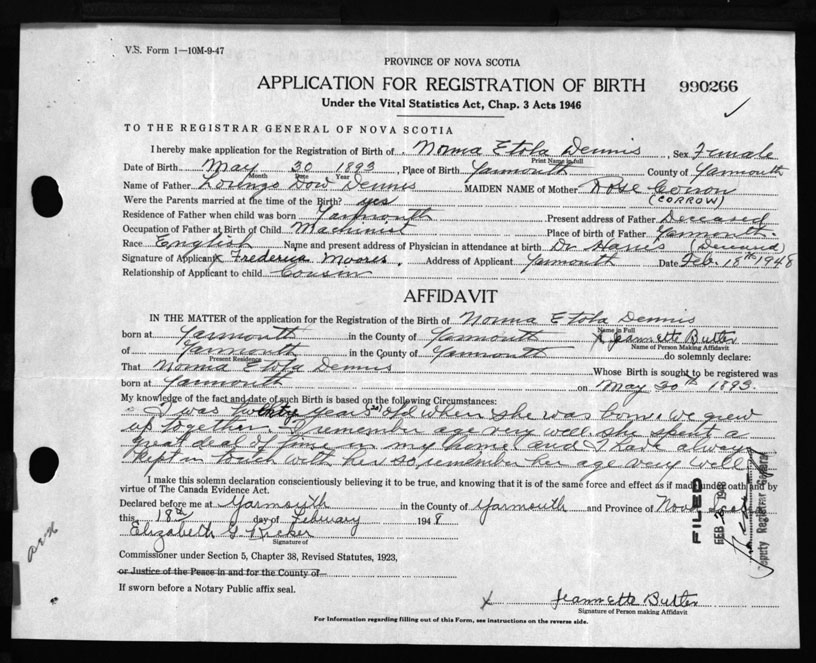 V.S. Form 1—10M-9-47
PROVINCE OF NOVA SCOTIA
APPLICATION FOR REGISTRATION OF BIRTH 990266
Under the Vital Statistics Act, Chap. 3 Acts 1946
TO THE REGISTRAR GENERAL OF NOVA SCOTIA
I hereby make application for the Registration of Birth of Norma Etola Dennis, Sex Female
Print Name in full
Date of Birth May 30 1893, Place of Birth Yarmouth County of Yarmouth
Month Date Year
Name of Father Lorenzo Dow Dennis MAIDEN NAME of Mother Rose Corrow
(CORROW)
Were the Parents married at the time of the Birth? yes
Residence of Father when child was born Yarmouth Present address of Father Deceased
Occupation of Father at Birth of Child Machinist Place of birth of Father Yarmouth
Race English Name and present address of Physician in attendance at birth Dr Harris (Deceased)
Signature of Applicant x Frederica Moores. Address of Applicant Yarmouth Date Feb. 18th 1948
Relationship of Applicant to child Cousin
AFFIDAVIT
IN THE MATTER of the application for the Registration of the Birth of Norma Etola Dennis
Name in Full
born at Yarmouth in the County of Yarmouth x Jeannette Butler
Name of Person Making Affidavit
of Yarmouth in the County of Yarmouth do solemnly declare:
Present Residence
That Norma Etola Dennis Whose Birth is sought to be registered was
born at Yarmouth on May 30th 1893.
My knowledge of the fact and date of such Birth is based on the following Circumstances:
I was twenty years old when she was borne we grew
up together. I remember age very well she spent a
great deal of time in my home and I have always
kept in touch with her so remember her age very well
I make this solemn declaration conscientiously believing it to be true, and knowing that it is of the same force and effect as if made under oath and by
virtue of The Canada Evidence Act.
Declared before me at Yarmouth in the County of Yarmouth and Province of Nova
this 18th day of February 1948
Elizabeth G Ricker
Signature of
Commissioner under Section 5, Chapter 38, Revised Statutes, 1923,
or Justice of the Peace in and for the County of
If sworn before a Notary Public affix seal.
x Jeannette Butler
Signature of Person making Affidavit
For Information regarding filling out of this Form, see instructions on the reverse side.
FILED
Deputy Registrar General